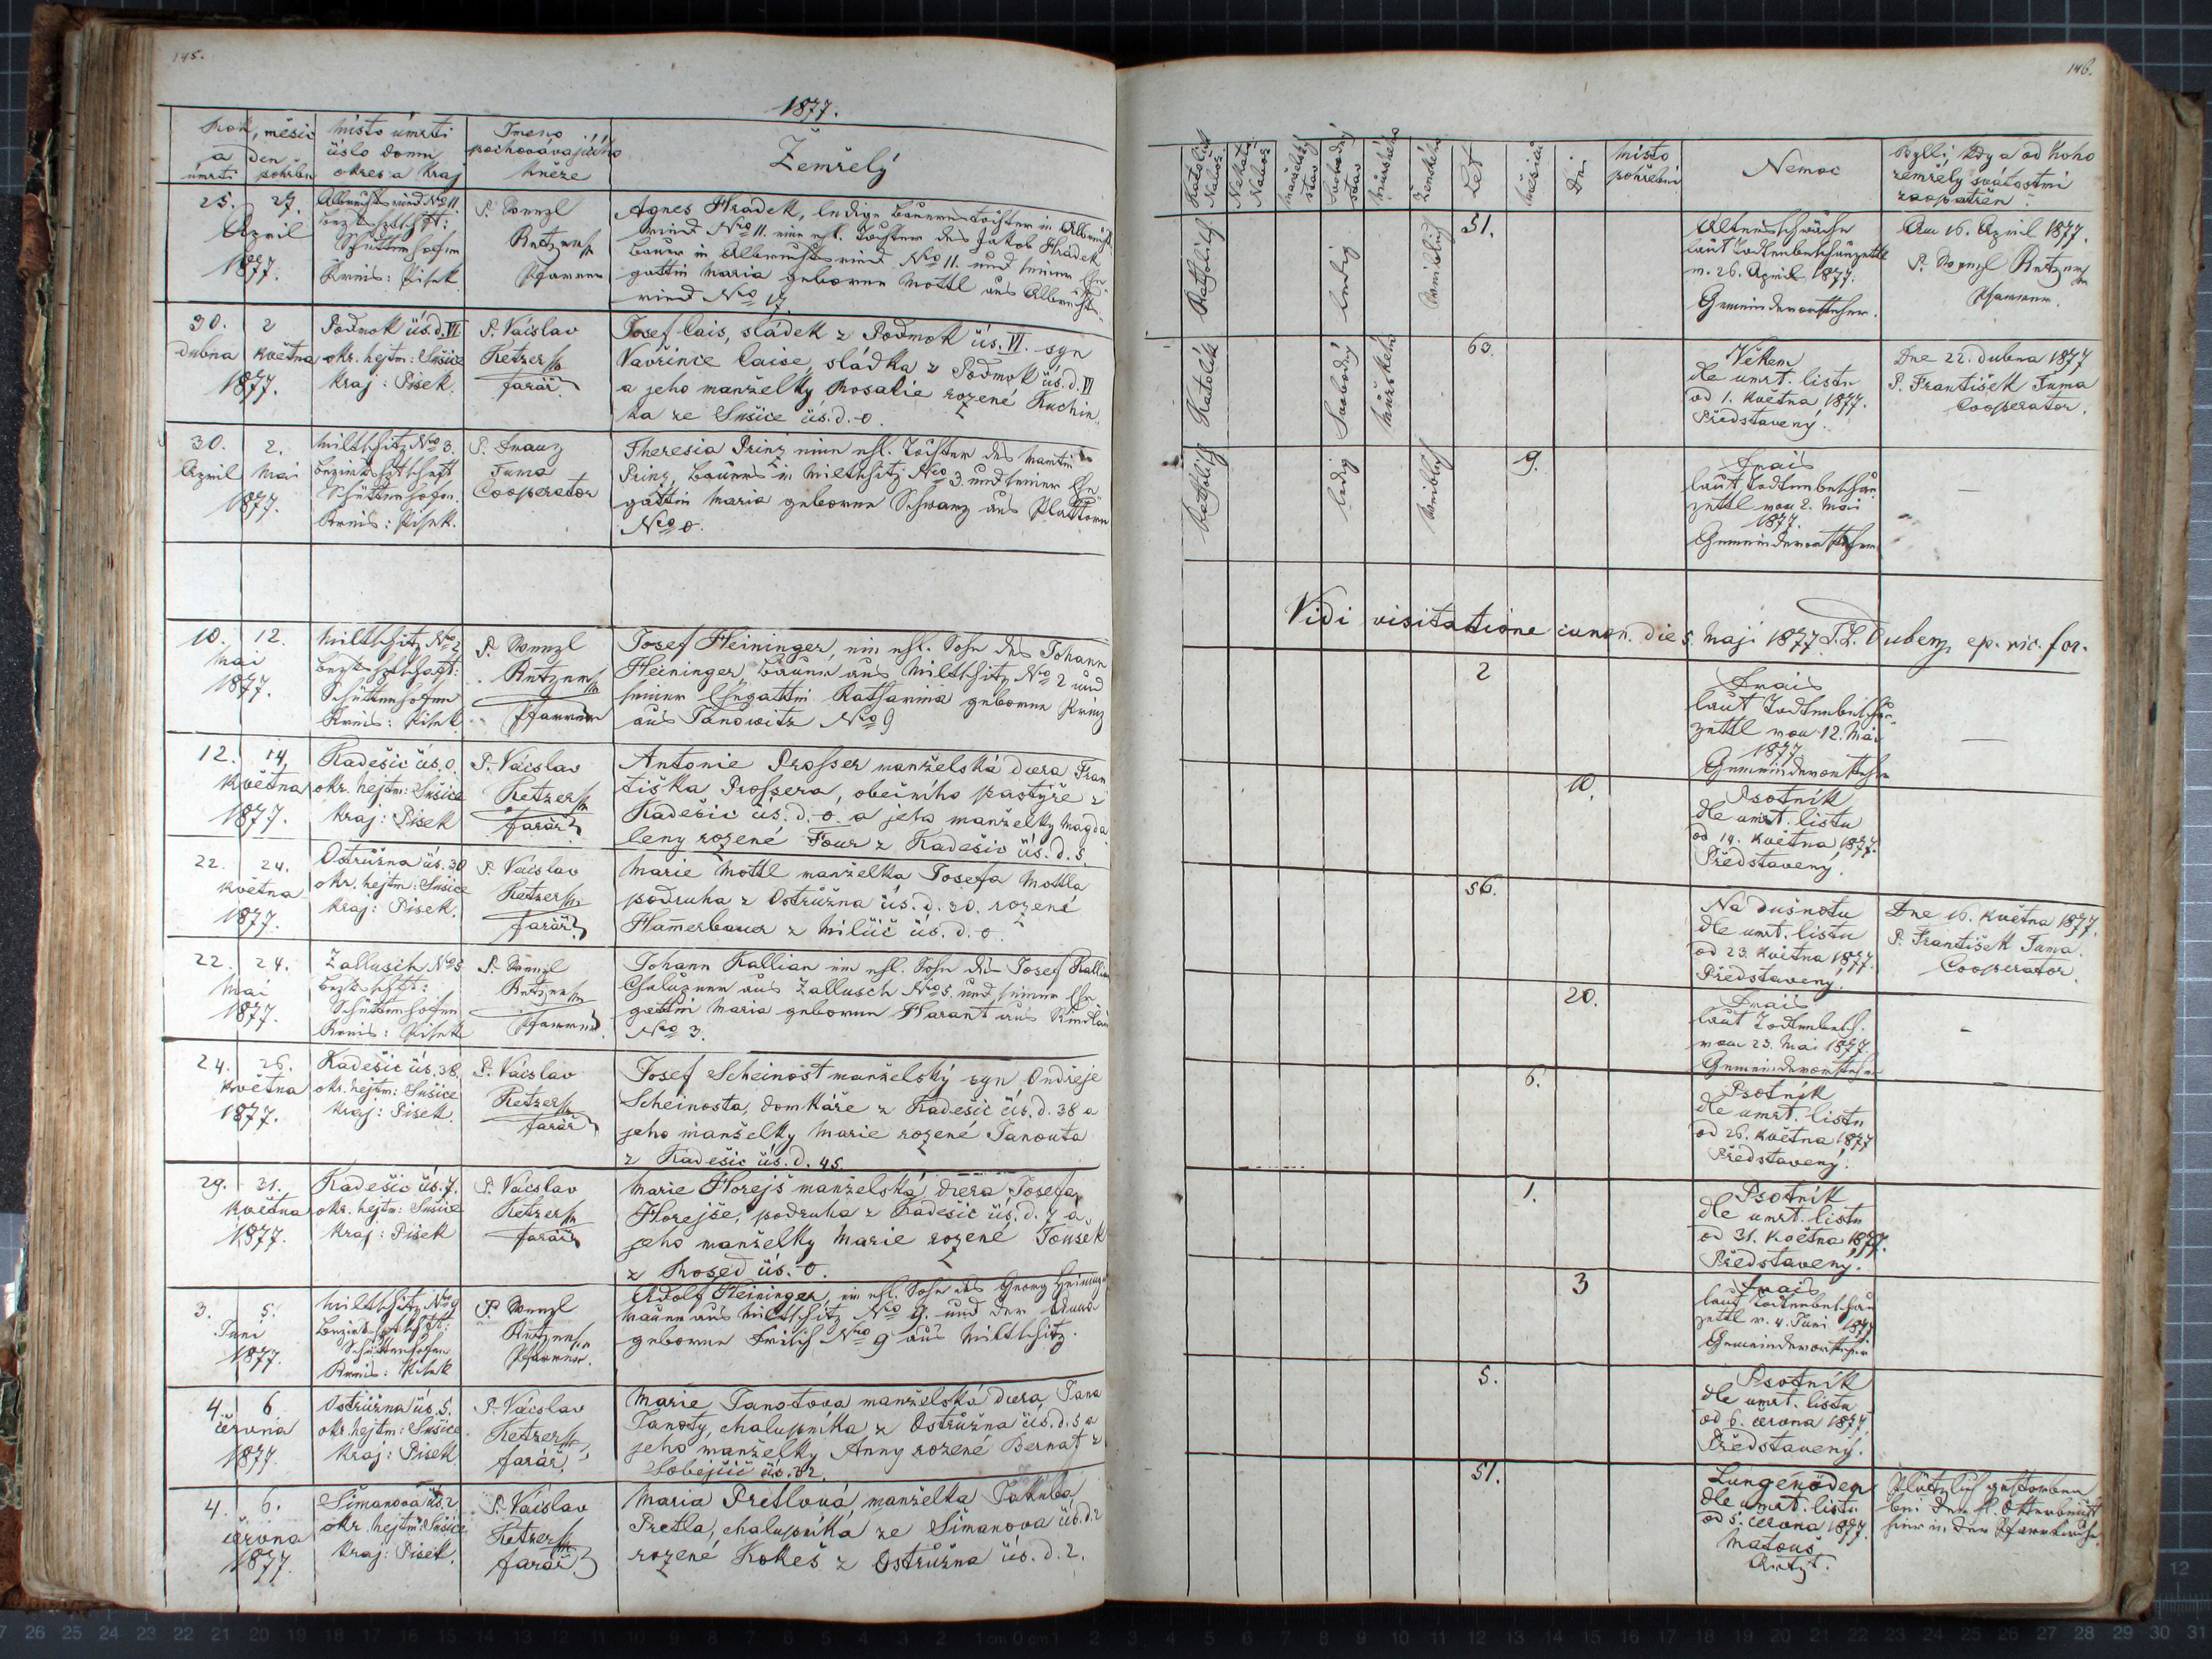 145.
1877.
Rok, měsíc
a den
úmrtí pohřbu
místo úmrtí
číslo domu
okres a Kraj
Jmeno
pochovávajícího
Kněze
Zemřelý
25. 27.
April
1877.
Albrechtsried No 11
Schüttenhofen
Kreis: Pisek.
P. Wenzl
Ketzer
Pfarrer
Agnes Hradek, ledige Bauerstochter in Albrechts-
ried No 11. eine ehl. Tochter des Jakob Hradek
Bauer in Albrechtsried No 11. und seiner Ehe-
gattin Maria geborene Mottl aus Albrechts-
ried No 17.
30. 2
dubna května
1877.
Podmok čís. d. VI
okr. hejtm: Sušice
Kraj: Pisek.
P. Václav
Ketzer
farář
Josef Cais, sládek z Podmok čís. VI. syn
Vavřince Caise, sládka z Podmok čís. d. VI
a jeho manželky Rosalie rozené Kuchin
ka ze Sušice čís. d. 0.
30. 2.
April Mai
1877.
Miltschitz No 3.
Schüttenhofen.
Kreis: Pisek.
P. Franz
Tuma
Cooperator
Theresia Prinz eine ehl. Tochter des Martin
Prinz, Bauers in Miltschitz No 3. und seiner Ehe-
gattin Maria geborene Schwarz aus Plattorn
No 0.
10. 12.
Mai
1877.
Miltschitz No 2
Schüttenhofen
Kreis: Pisek
P. Wenzl
Ketzer
Pfarrer
Josef Heininger, ein ehl. Sohn des Johann
Heininger, Bauer aus Miltschitz No 2 und
seiner Ehegattin Katharina geborene Prinz
aus Janowitz No 9
12. 14.
května
1877.
Kadešic čís. 0.
okr. hejtm: Sušice
Kraj: Pisek
P. Václav
Ketzer
farář
Antonie Prosser manželská dcera Fran
tiška Prossera, obecního pastýře z
Kadešic čís. d. 0. a jeho manželky Magda
leny rozené Four z Kadešic čís. d. 5.
22. 24.
května
1877.
Ostružna čís. 30
okr. hejtm: Sušice
Kraj: Pisek.
P. Václav
Ketzer
farář
Marie Mottl manželka Josefa Mottla
podruha z Ostružna čís. d. 30. rozené
Hamerbauer z Milčic čís. d. 0.
22. 24.
Mai
1877.
Zallusch No 5
Schüttenhofen
Kreis: Pisek
P. Wenzl
Ketzer
Pfarrer
Johann Kallian ein ehl. Sohn des Josef Kallian
Chalupner aus Zallusch No 5. und seiner Ehe-
gattin Maria geborene Harant aus
No 3.
24. 26.
května
1877.
Kadešic čís. 38.
okr. hejtm: Sušice
Kraj: Pisek
P. Václav
Ketzer
farář
Josef Scheinost manželský syn Ondřeje
Scheinosta, domkáře z Kadešic čís. d. 38 a
jeho manželky Marie rozené Janouta
z Kadešic čís. d. 45
29. 31.
května
1877.
Kadešic čís. 7.
okr. hejtm: Sušice
Kraj: Pisek
P. Václav
Ketzer
farář
Marie Horejš manželská dcera Josefa
Horejše, podruha z Kadešic čís. d. 7 a
jeho manželky Marie rozené Toušek
z Rosed čís. 0.
3. 5.
Juni
1877.
Miltschitz No 9
Schüttenhofen
Kreis: Pisek
P. Wenzl
Ketzer
Pfarrer.
Adolf Heininger, ein ehl. Sohn des Georg Heininger
Bauer aus Miltschitz No 9. und der
geborene No 9 aus Miltschitz.
4. 6
června
1877.
Ostružna čís. 5.
okr. hejtm: Sušice
Kraj: Pisek
P. Václav
Ketzer
farář.
Marie Janotova manželská dcera, Jana
Janoty, chalupníka z Ostružna čís. d. 5 a
jeho manželky Anny rozené Bernat z
Soběšic čís. 32.
4. 6.
června
1877.
Šimanova čís. 2
okr. hejtm: Sušice
Kraj: Pisek.
P. Václav
Ketzer
farář
Maria Pretlová manželka Jakuba
Pretla, chalupníka ze Šimanova čís. d. 2
rozené Kokeš z Ostružna čís. d. 2.
146.
Katolick
Nábož.
Nekat.
Nábož
manželský
stav
Svobodný
stav
mužského
ženského
Let
měsíců
Dní
místo
pohřební
Nemoc
Byl-li, kdy a od koho
zemřelý svátostmi
zaopatřen
Katholisch
ledig
weiblich
51.
Altersschwäche
laut Todtenbeschauzettl
v. 26. April 1877.
Gemeindevorsteher.
Am 16. April 1877.
P. Wenzl Ketzer
Pfarrer.
Katolické
Svobodný
Mužského
63.
Věkem
dle umrt. listu
od 1. května 1877.
Představený.
Dne 22. dubna 1877
P. František Tuma
Cooperator.
Katholisch
ledig
weiblich
9.
Frais
laut Todtenbeschau
zettl vom 2. Mai
1877.
Gemeindevorsteher
—
Vidi visitatione canon. die 5. Maji 1877 Dubenz, ep. vic. for.
2
Frais
laut Todtenbeschau-
zettl vom 12. Mai
1877
Gemeindevorsteher
—
10.
Psotník
dle umrt. listu
od 14. května 1877.
Představený.
56.
Na dušnotu
dle umrt. listu
od 23. května 1877.
Představený.
Dne 16. května 1877.
P. František Tuma.
Cooperator.
20.
Frais
laut Todtenbesch.
vom 23. Mai 1877.
Gemeindevorsteher
-
6.
Psotník
dle umrt. listu
od 26. května 1877
Představený.
1.
Psotník
dle umrt. listu
od 31. května 1877.
Představený.
3
Frais
laut Todtenbeschau
zettl v. 4. Juni 1877
Gemeindevorsteher
5.
Psotník
dle umrt. listu
od 6. června 1877.
Představený.
51.
Lungenödem
dle umrt. listu
od 5. června 1877.
Matouš
Arzt.
Plötzlich gestorben
bei der hl.
hier in der Pfarrkirche.